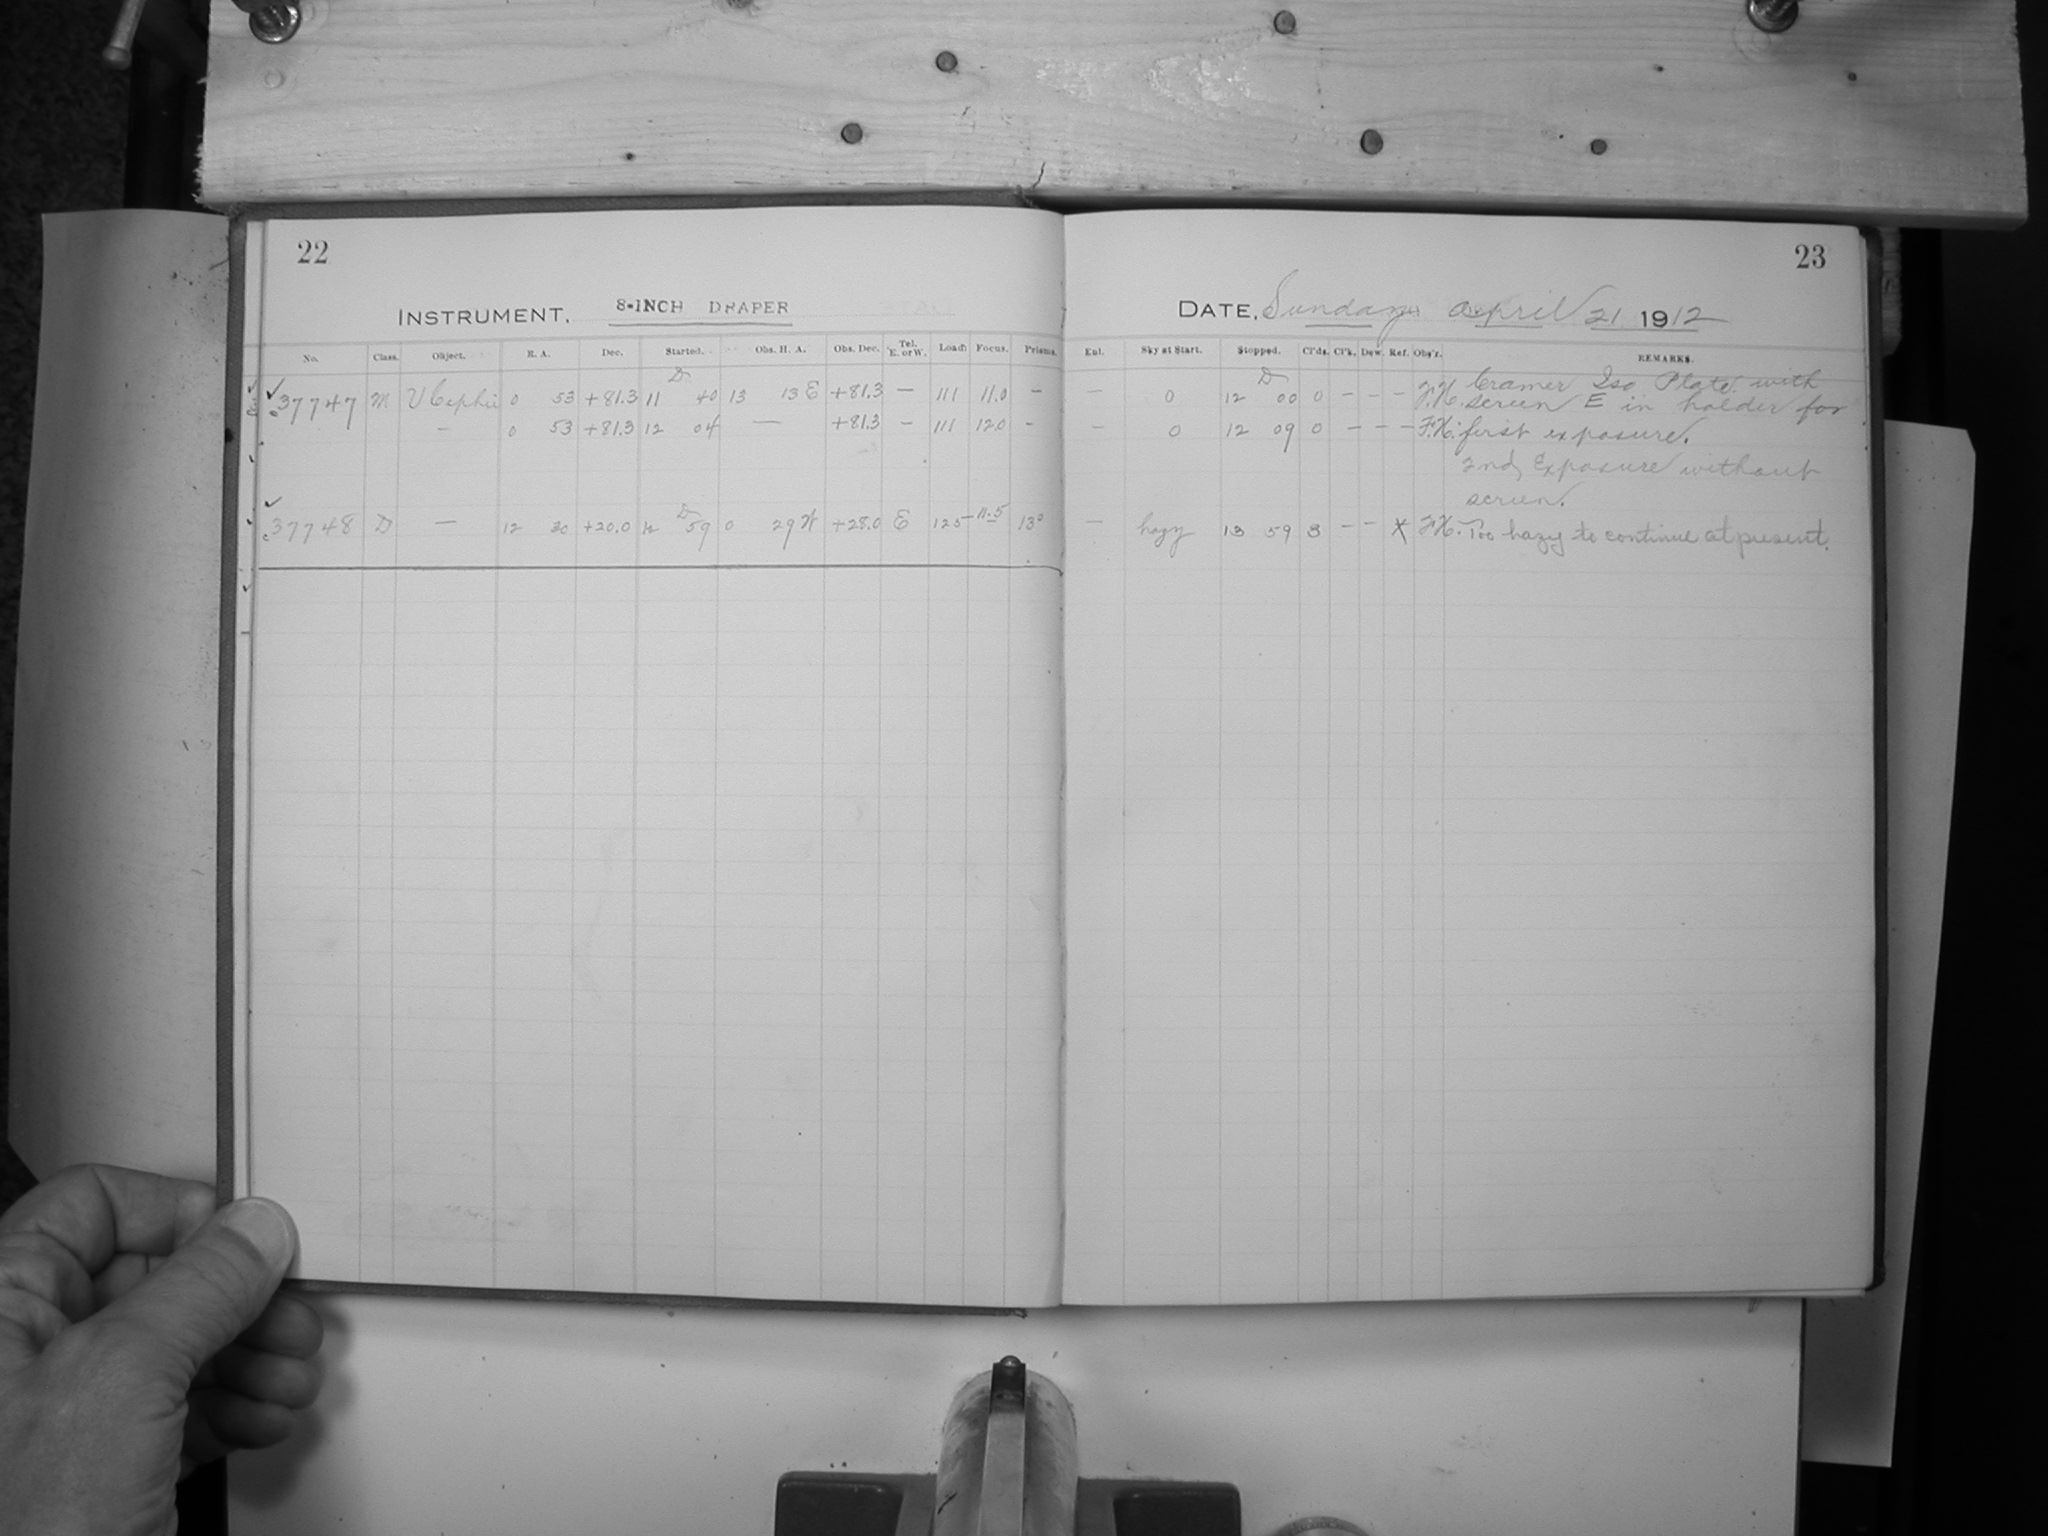 22
23
INSTRUMENT. 8-INCH DRAPER
DATE, Sunday April 21 1912
No. Class. Object. R. A. Dec. Started. Obs. H. A. Obs. Dec. Tel. E. or W. Load Focus. Prisms.
Ent. Sky at Start. Stopped. Cl'ds. Cl'k. Dew. Ref. Obs'r. REMARKS.
D
D
37747 M U Cephei 0 53 +81.3 11 40 13 13 E +81.3 — 111 11.0 –
– 0 12 00 0 – – – F.H. Cramer Iso Plate with
screen E in holder for
— 0 53 +81.3 12 04 — +81.3 – 111 12.0 –
– 0 12 09 0 – – – F.H. first exposure.
2nd Exposure without
screen.
D
37748 D — 12 30 +20.0 12 59 0 29 W +28.0 E 125 11.5 13°
– hazy 13 59 3 – – X F.H. Too hazy to continue at present.